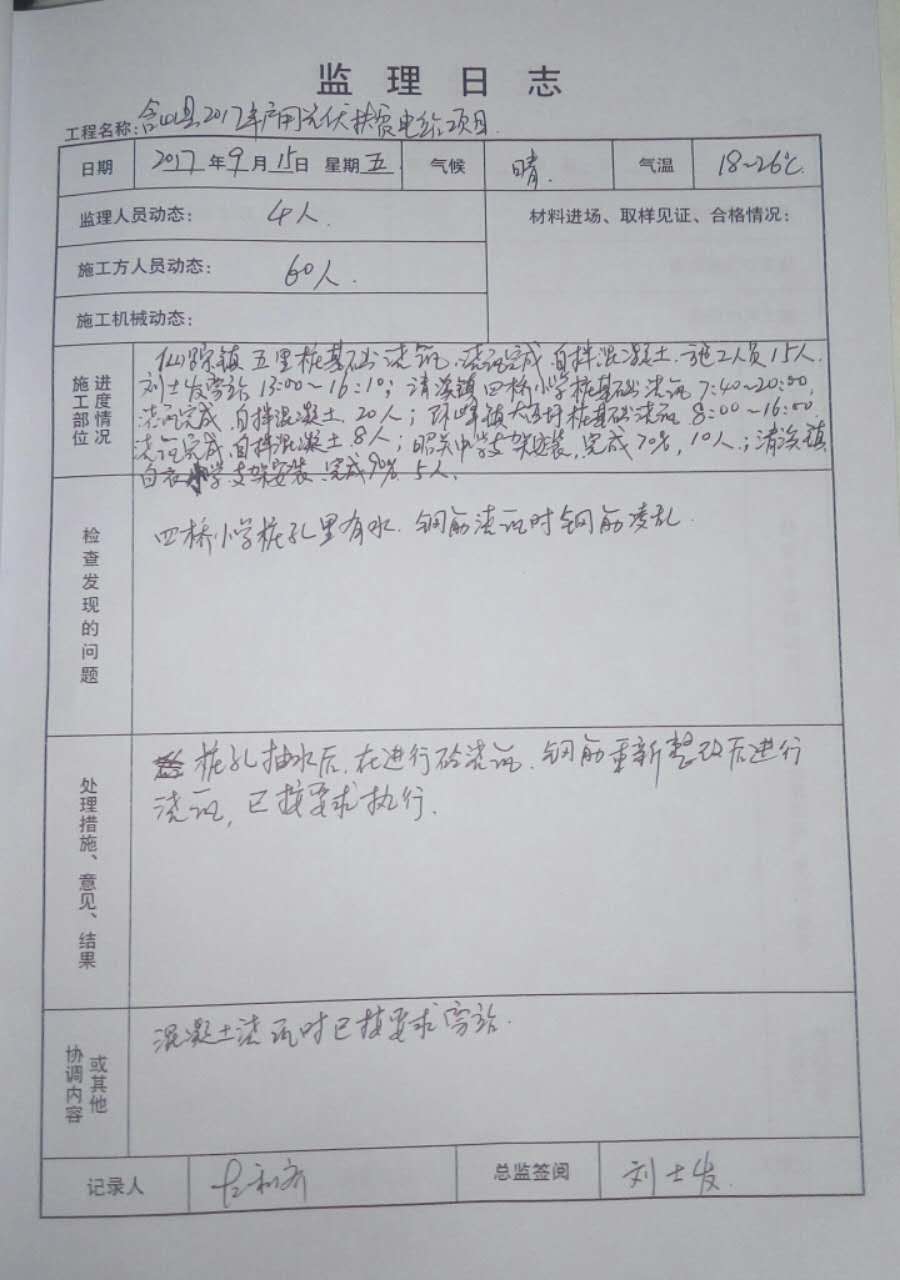 监理日志
工程名称:含山县2017年户用光伏扶贫电站项目.
日期 2017年9月15日 星期五 气候 晴. 气温 18~26℃.
监理人员动态: 4人. 材料进场、取样见证、合格情况:
施工方人员动态: 60人.
施工机械动态:
施工部位 进度情况
仙踪镇五里桩基础浇筑.浇筑完成.自拌混凝土.施工人员15人.
刘士发旁站13:00~16:10;清溪镇四桥小学桩基础浇筑7:40~20:00,
浇筑完成.自拌混凝土.20人;环峰镇大 村桩基础浇筑8:00~16:00
浇筑完成,自拌混凝土8人;昭关中学支架安装,完成70%,10人.;清溪镇
白衣小学支架安装.完成90%.5人.
检查发现的问题
四桥小学桩孔里有水.钢筋浇筑时钢筋凌乱.
处理措施、意见、结果
桩孔抽水后.在进行砼浇筑.钢筋重新整改后进行
浇筑,已按要求执行.
协调内容 或其他
混凝土浇筑时已按要求旁站.
记录人 总监签阅 刘士发.